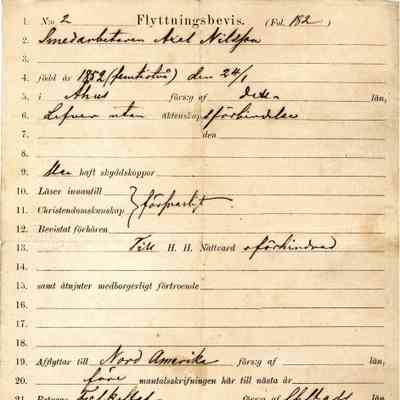 1. N:o 2 Flyttningsbevis. (Fol. 182)
2. Smedarbetaren Axel Nilsson
3.
4. född år 1852 (femtiotvå) den 24/1
5. i Åhus förs:g af dito län,
6. Lefver utan äktenskapsförhindelse
7. den
8.
9. haft skyddskoppor
10. Läser innantill
11. Christendomskunskap } försvarligt
12. Bevistat förhören
13. Till H. H. Nattvard oförhindrad
14.
15. samt åtnjuter medborgerligt förtroende
16.
17.
18.
19. Afflyttar till Nord Amerika förs:g af län,
20. före mantalsskrifningen här till nästa år
21. förs:g af län,